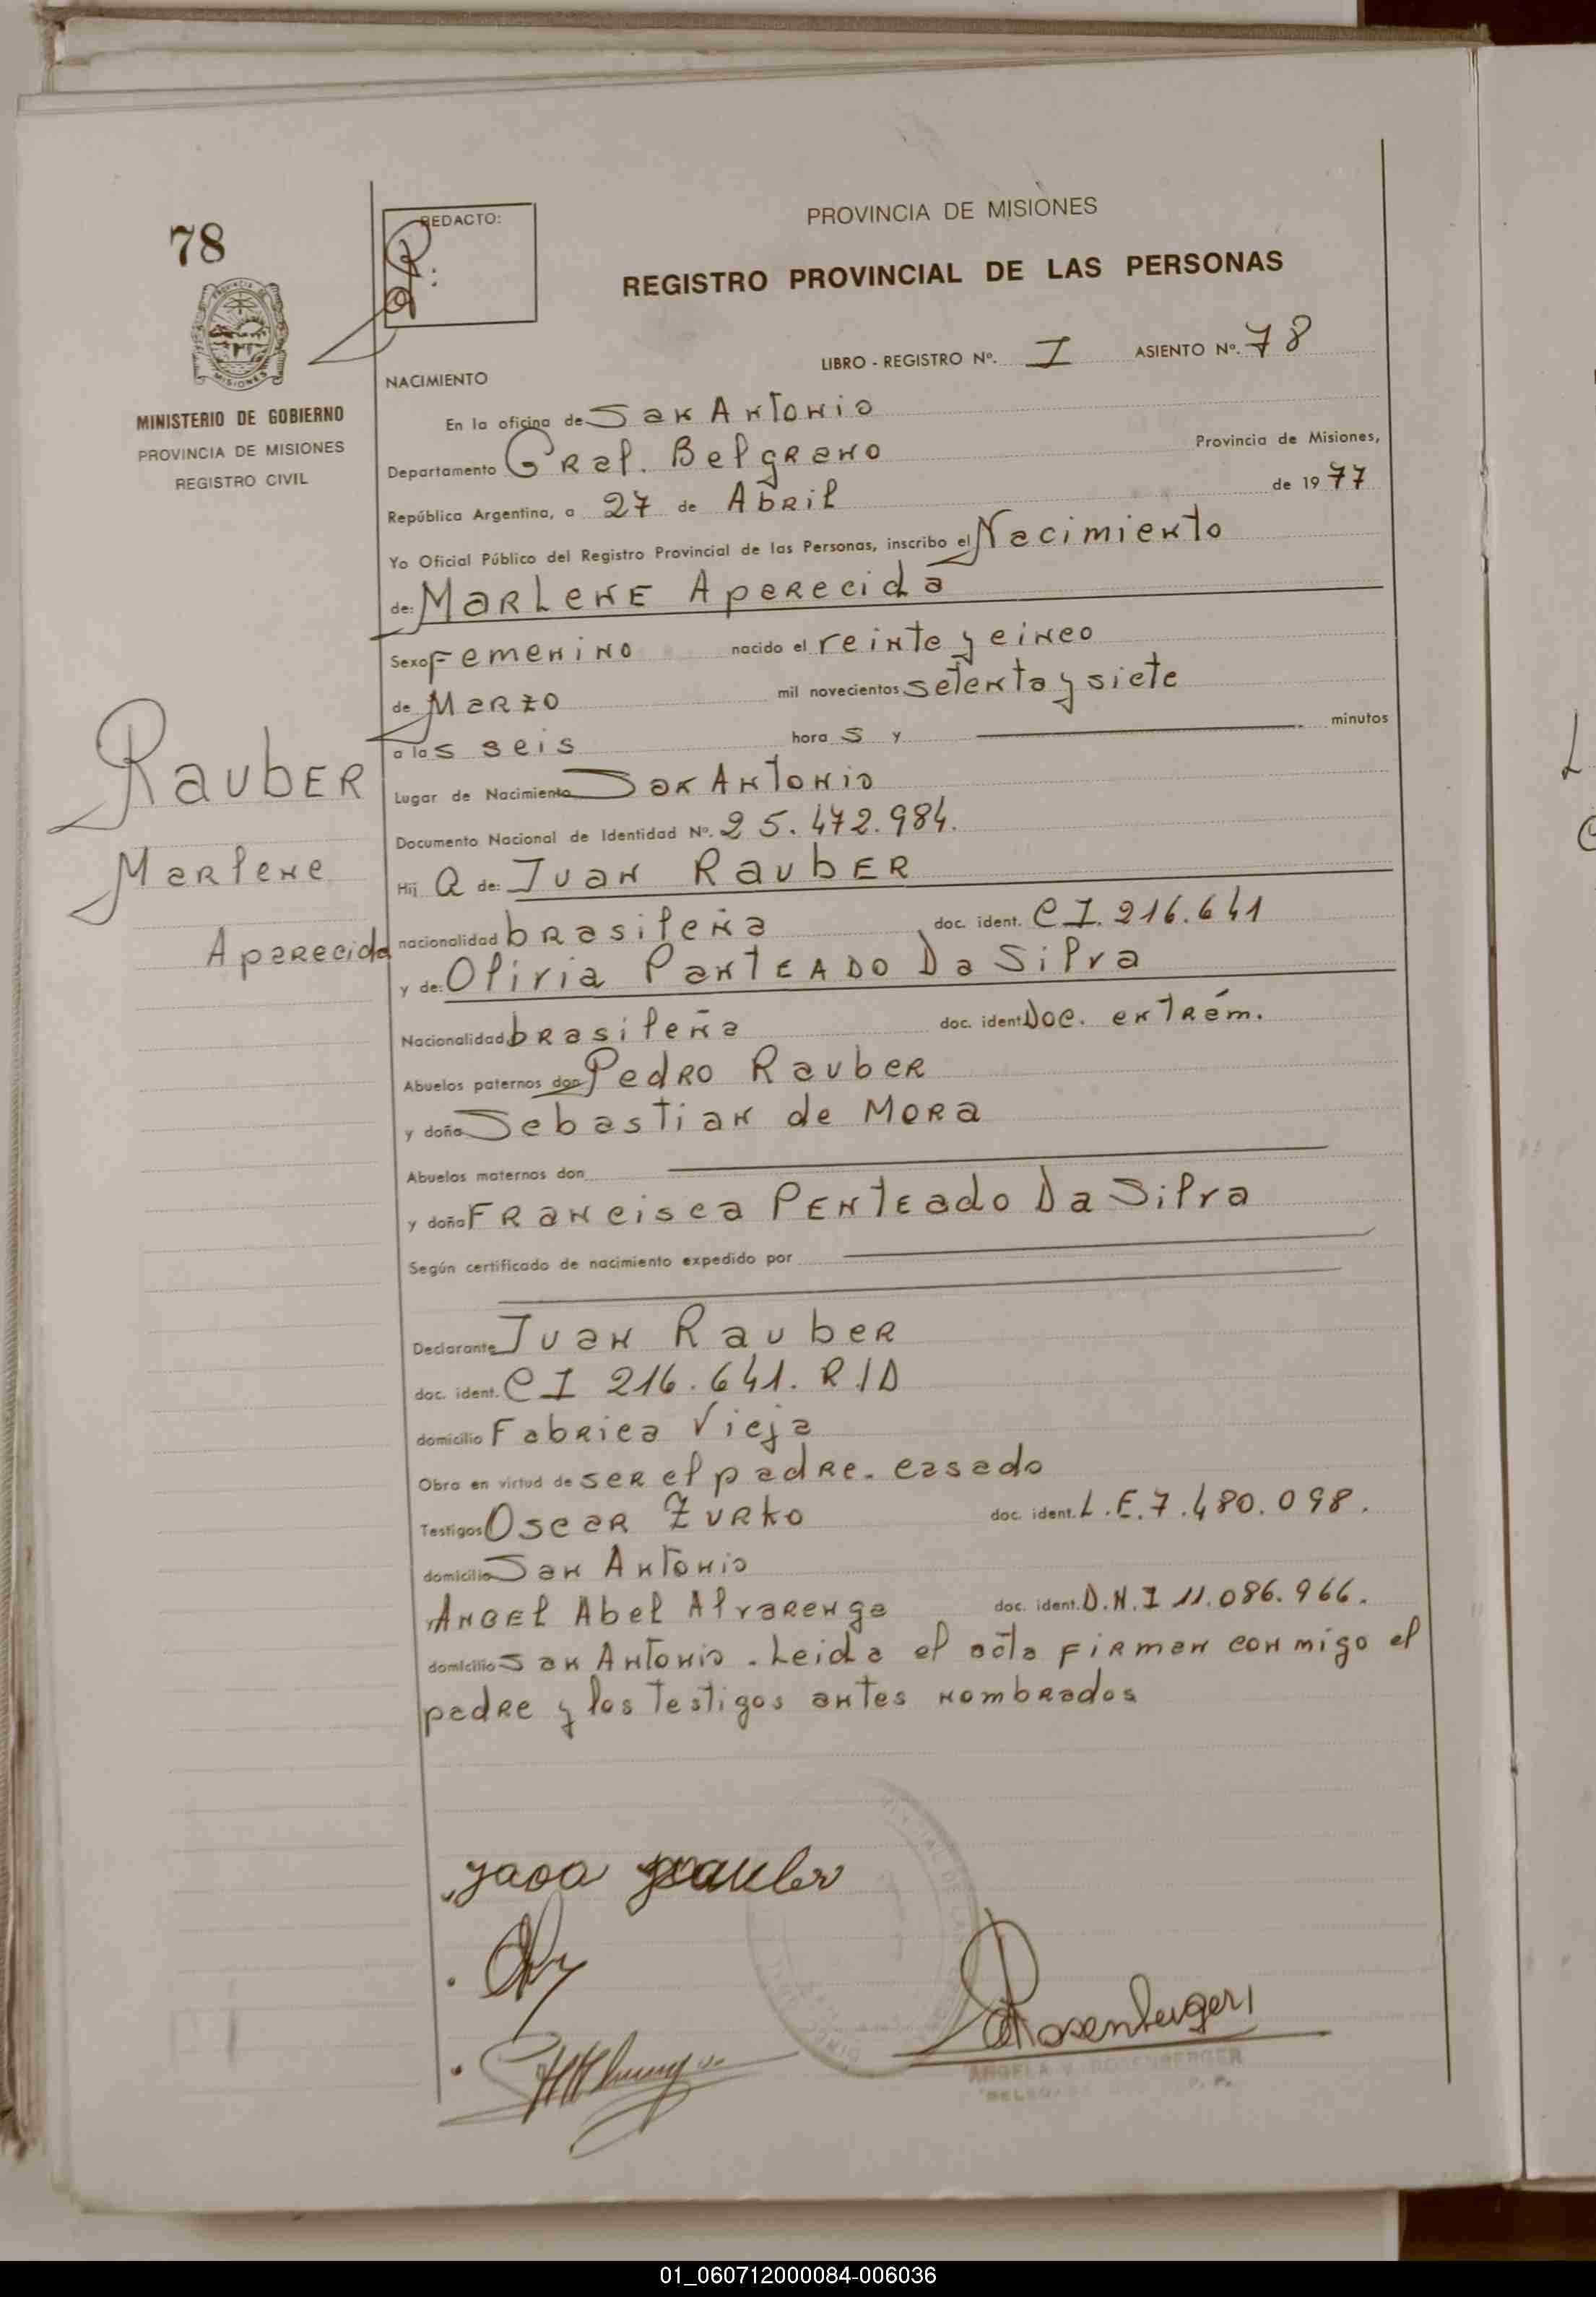 78
REDACTO:
PROVINCIA DE MISIONES
REGISTRO PROVINCIAL DE LAS PERSONAS
LIBRO - REGISTRO Nº. I ASIENTO Nº. 78
MISIONES
MINISTERIO DE GOBIERNO
PROVINCIA DE MISIONES
REGISTRO CIVIL
NACIMIENTO
En la oficina de San Antonio
Departamento Gral. Belgrano Provincia de Misiones,
República Argentina, a 27 de Abril de 1977
Yo Oficial Público del Registro Provincial de las Personas, inscribo el Nacimiento
de: Marlene Aparecida
Sexo Femenino nacido el veinte y cinco
de Marzo mil novecientos setenta y siete
a las seis hora s y minutos
Rauber
Marlene
Aparecida
Lugar de Nacimiento San Antonio
Documento Nacional de Identidad Nº. 25.472.984.
Hij a de: Juan Rauber
nacionalidad brasileña doc. ident. CI. 216.641
y de: Oliria Panteado Da Silva
Nacionalidad brasileña doc. ident. Doc. en trám.
Abuelos paternos don Pedro Rauber
y doña Sebastian de Mora
Abuelos maternos don
y doña Francisca Penteado Da Silva
Según certificado de nacimiento expedido por
Declarante Juan Rauber
doc. ident. CI 216.641. R./D
domicilio Fabrica Vieja
Obra en virtud de ser el padre. casado
Testigos Oscar Zurko doc. ident. L.E. 7.480.098.
domicilio San Antonio
Angel Abel Alvarenga doc. ident. D.N.I 11.086.966.
domicilio San Antonio. Leida el acta firman con migo el
padre y los testigos antes nombrados
Rosenberger
ANGELA V. ROSENBERGER
01_060712000084-006036